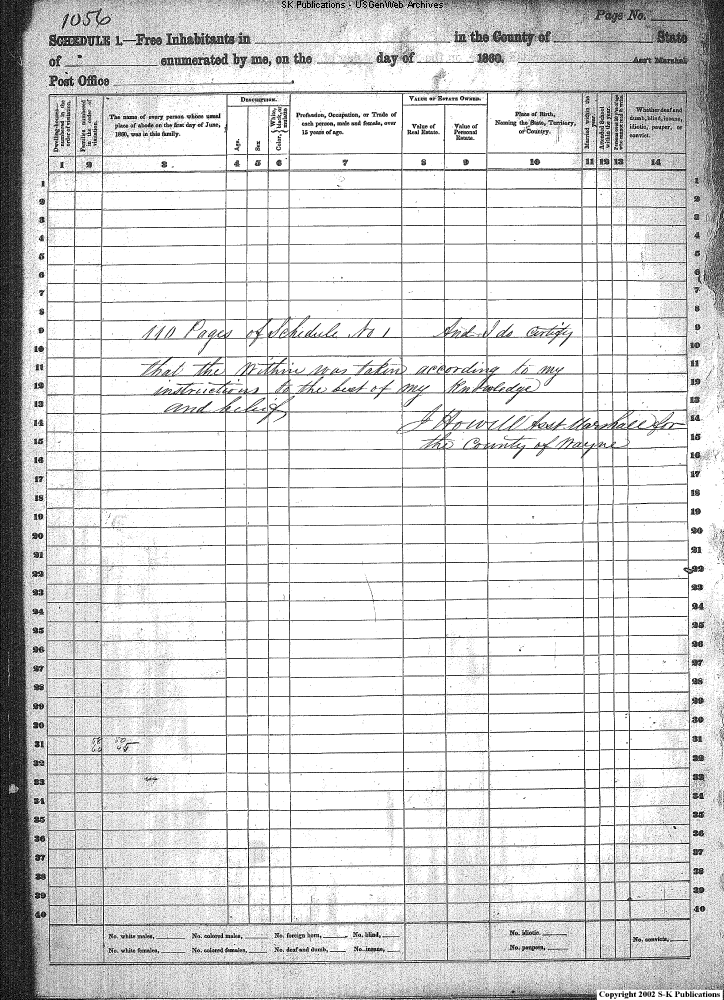 SK Publications - USGenWeb Archives
1056
Page No.
SCHEDULE 1.—Free Inhabitants in in the County of State
of enumerated by me, on the day of 1860. Ass't Marshal
Post Office
Dwelling-houses, numbered in the order of visitation.
Families numbered in the order of visitation.
The name of every person whose usual place of abode on the first day of June, 1860, was in this family.
DESCRIPTION.
Age.
Sex
Color, White, black, or mulatto
Profession, Occupation, or Trade of each person, male and female, over 15 years of age.
VALUE OF ESTATE OWNED.
Value of Real Estate.
Value of Personal Estate.
Place of Birth, Naming the State, Territory, or Country.
Married within the year.
Attended School within the year.
Whether deaf and dumb, blind, insane, idiotic, pauper, or convict.
1 2 3 4 5 6 7 8 9 10 11 12 13 14
1 1
2 2
3 3
4 4
5 5
6 6
7 7
8 8
9 110 Pages of Schedule No 1 And I do certify 9
10 10
11 that the within was taken according to my 11
12 instructions to the best of my knowledge 12
13 and belief 13
14 J Howell Asst Marshall for 14
15 the County of Wayne 15
16 16
17 17
18 18
19 19
20 20
21 21
22 22
23 23
24 24
25 25
26 26
27 27
28 28
29 29
30 30
31 31
32 32
33 33
34 34
35 35
36 36
37 37
38 38
39 39
40 40
No. white males, No. colored males, No. foreign born, No. blind, No. idiotic,
No. white females, No. colored females, No. deaf and dumb, No. insane, No. paupers, No. convicts,
Copyright 2002 S-K Publications